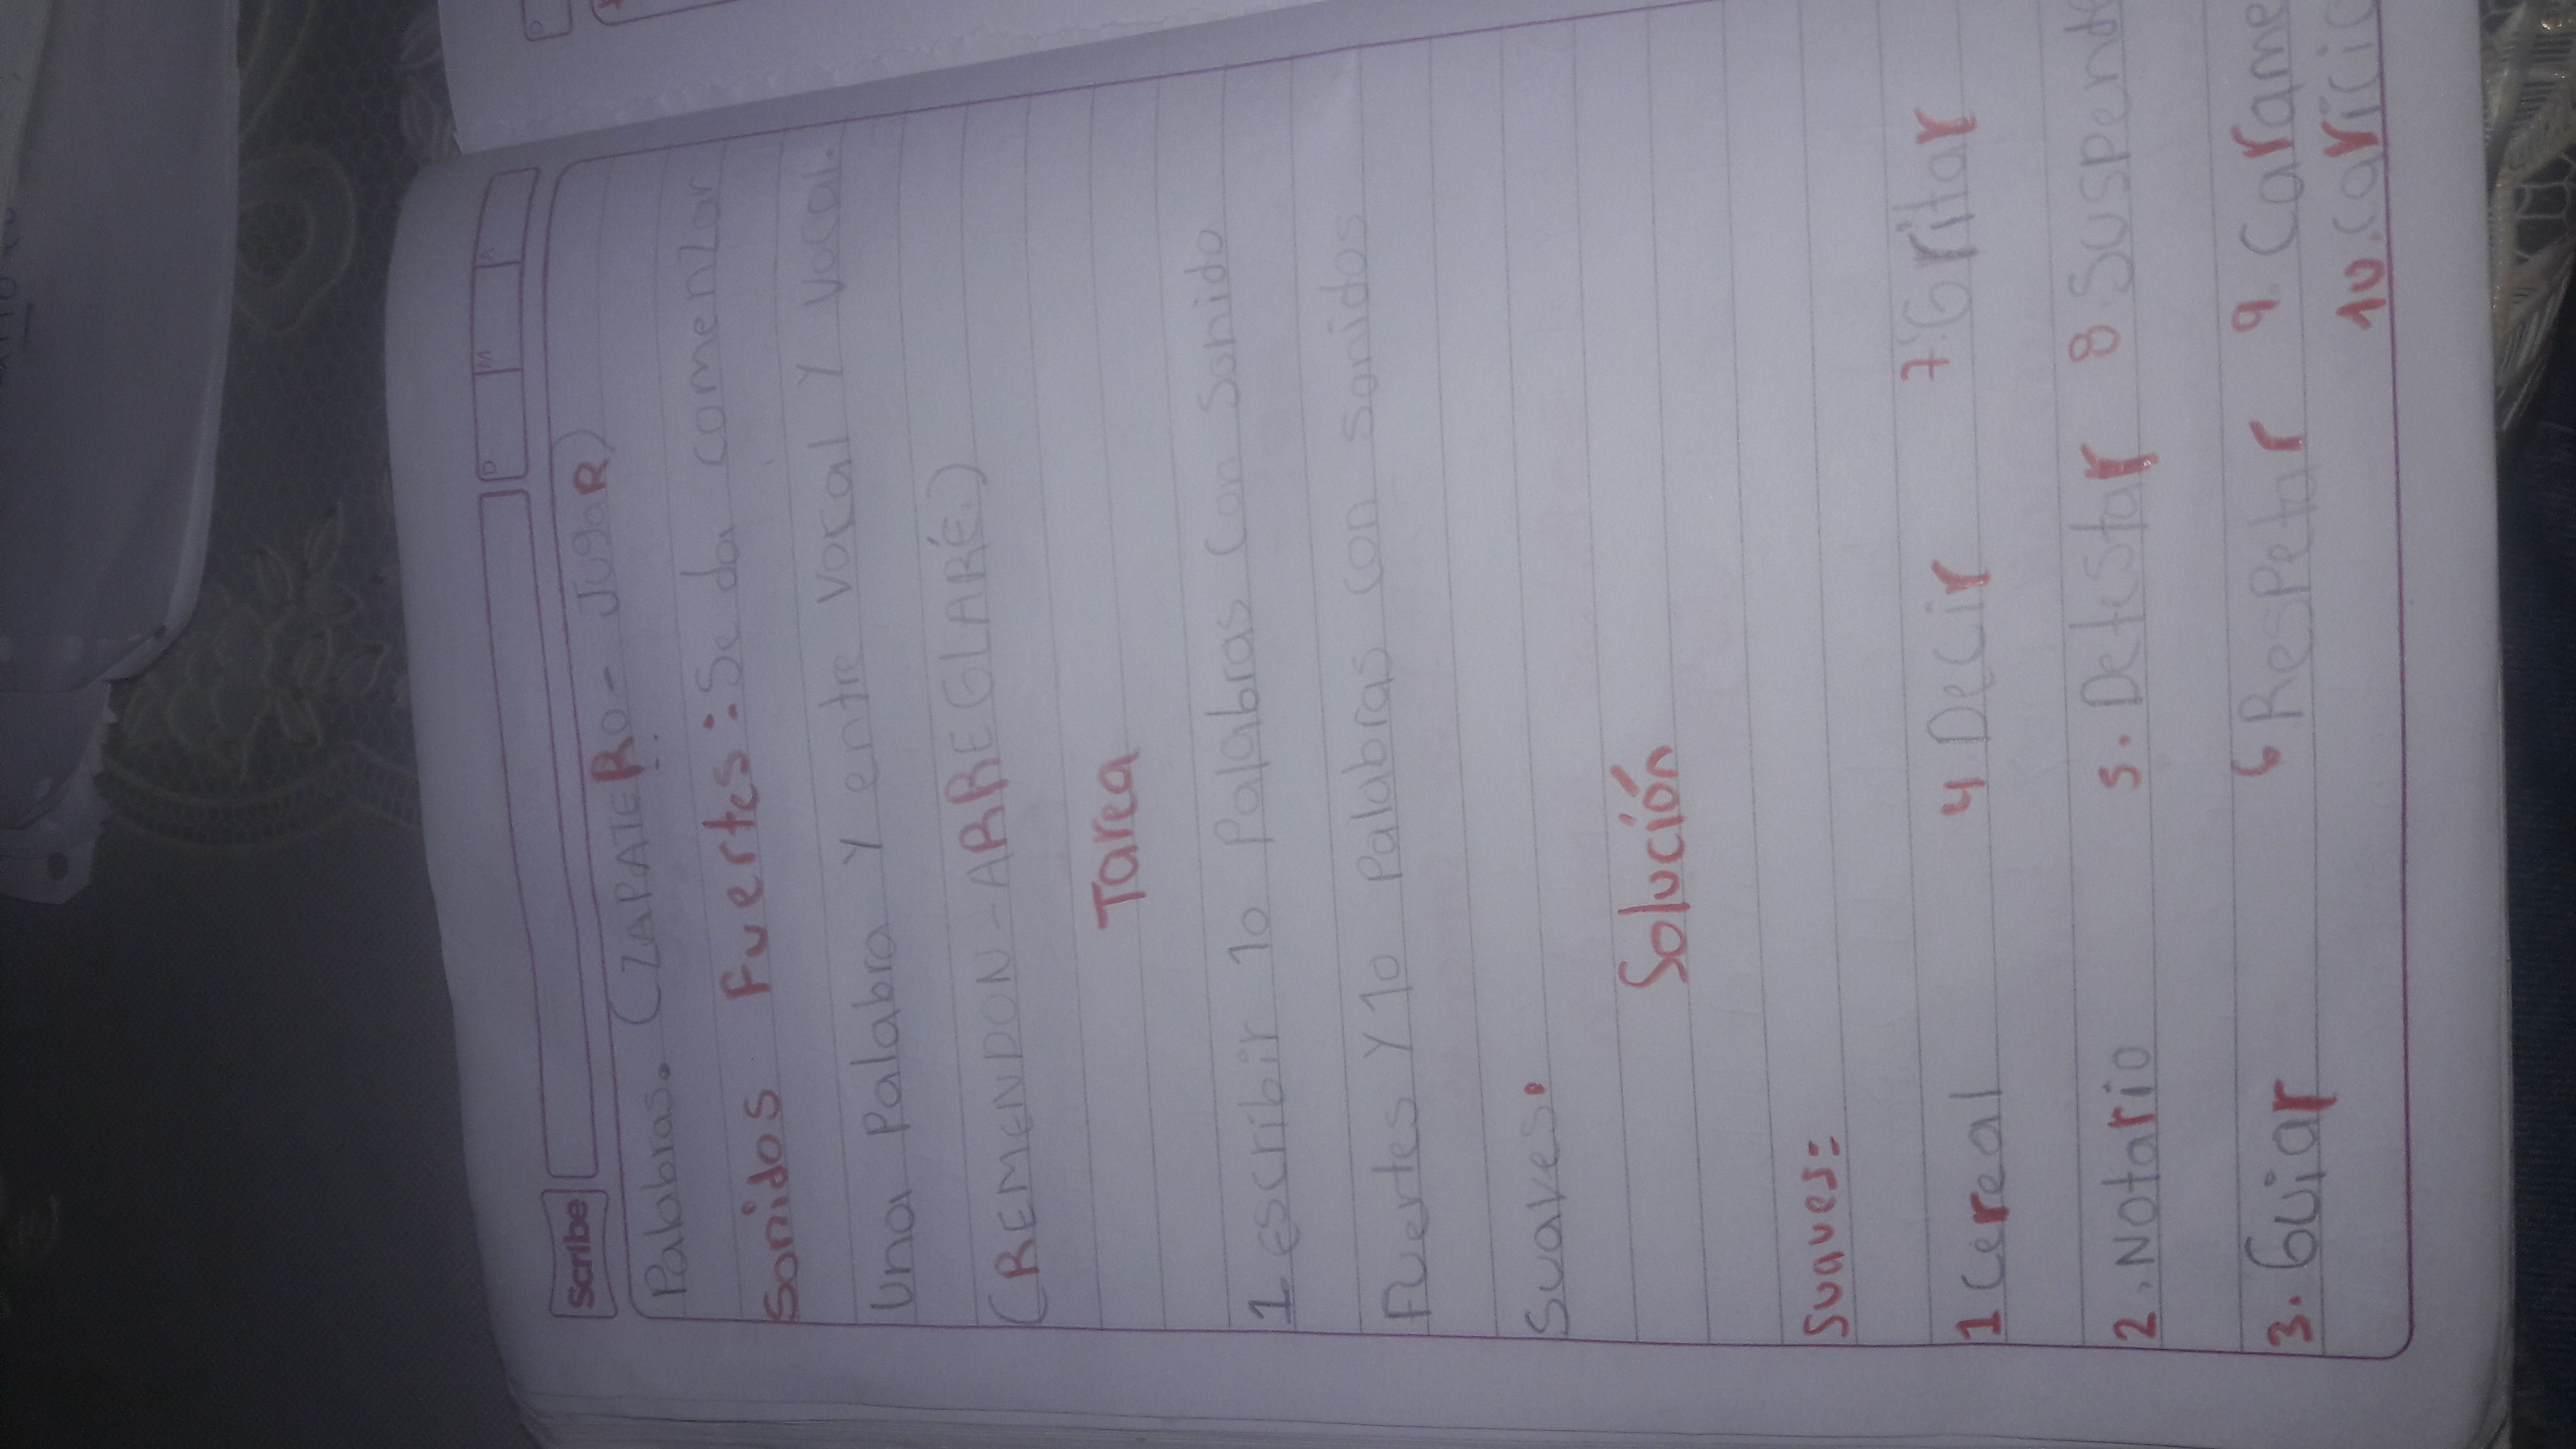 D M A
Scribe
Palabras. (ZAPATERO - JugaR)
Sonidos Fuertes: Se da comenzar
Una Palabra Y entre Vocal Y Vocal.
(REMENDON - ARREGLARÉ)
Tarea
1 escribir 10 Palabras Con Sonido
Fuertes Y 10 Palabras con sonidos
Suaves.
Solución
Suaves:
1 Cereal 4 Decir 7. Gritar
2. Notario 5. Detestar 8. Suspend
3. Guiar 6 Respetar 9. Carame
10. Carici